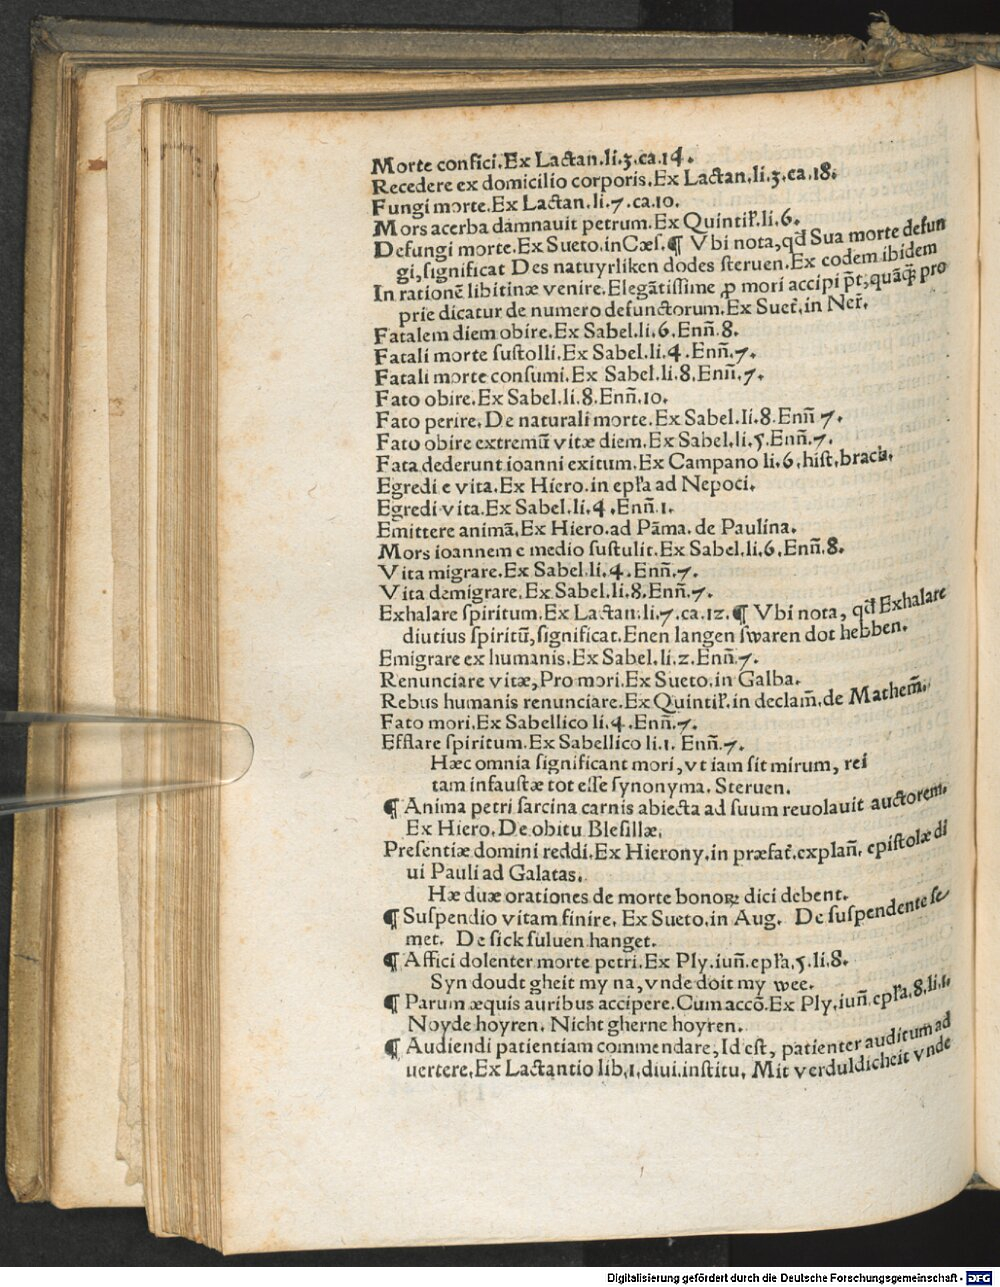 Morte confici. Ex Lactan. li. 3. ca. 14.
Recedere ex domicilio corporis. Ex Lactan. li. 3. ca. 18.
Fungi morte. Ex Lactan. li. 7. ca. 10.
Mors acerba damnauit petrum. Ex Quintil̃. li. 6.
Defungi morte. Ex Sueto. in Cæs. ¶ Vbi nota, qđ Sua morte defun
gi, significat Des natuyrliken dodes steruen. Ex eodem ibidem
In rationē libitinæ venire. Elegātissime ꝓ mori accipi p̄t, quāq̄ pro
prie dicatur de numero defunctorum. Ex Suet̃. in Ner̃.
Fatalem diem obire. Ex Sabel. li. 6. Enñ. 8.
Fatali morte sustolli. Ex Sabel. li. 4. Enñ. 7.
Fatali morte consumi. Ex Sabel. li. 8. Enñ. 7.
Fato obire. Ex Sabel. li. 8. Enñ. 10.
Fato perire. De naturali morte. Ex Sabel. li. 8. Enñ 7.
Fato obire extremū vitæ diem. Ex Sabel. li. 5. Enñ. 7.
Fata dederunt ioanni exitum. Ex Campano li. 6. hist. brach.
Egredi e vita. Ex Hiero. in epl̃a ad Nepoci.
Egredi vita. Ex Sabel. li. 4. Enñ. 1.
Emittere animā. Ex Hiero. ad Pāma. de Paulina.
Mors ioannem e medio sustulit. Ex Sabel. li. 6. Enñ. 8.
Vita migrare. Ex Sabel. li. 4. Enñ. 7.
Vita demigrare. Ex Sabel. li. 8. Enñ. 7.
Exhalare spiritum. Ex Lactan. li. 7. ca. 12. ¶ Vbi nota, qđ Exhalare
diutius spiritū, significat. Enen langen swaren dot hebben.
Emigrare ex humanis. Ex Sabel. li. 2. Enñ. 7.
Renunciare vitæ, Pro mori. Ex Sueto. in Galba.
Rebus humanis renunciare. Ex Quintil̃. in declam̃. de Mathem̃.
Fato mori. Ex Sabellico li. 4. Enñ. 7.
Efflare spiritum. Ex Sabellico li. 1. Enñ. 7.
Hæc omnia significant mori, vt iam sit mirum, rei
tam infaustæ tot esse synonyma. Steruen.
¶ Anima petri sarcina carnis abiecta ad suum reuolauit auctorem.
Ex Hiero. De obitu Blesillæ.
Presentiæ domini reddi. Ex Hierony. in præfat̃. explañ. epistolæ di
ui Pauli ad Galatas.
Hæ duæ orationes de morte bonoꝝ dici debent.
¶ Suspendio vitam finire. Ex Sueto. in Aug. De suspendente se
met. De sick suluen hanget.
¶ Affici dolenter morte petri. Ex Ply. iuñ. epl̃a. 5. li. 8.
Syn doudt gheit my na, vnde doit my wee.
¶ Parum æquis auribus accipere. Cum accō. Ex Ply. iuñ. epl̃a. 8. li. 1.
Noyde hoyren. Nicht gherne hoyren.
¶ Audiendi patientiam commendare, Id est, patienter auditum ad
uertere. Ex Lactantio lib. 1. diui. institu. Mit verduldicheit vnde
Digitalisierung gefördert durch die Deutsche Forschungsgemeinschaft - DFG